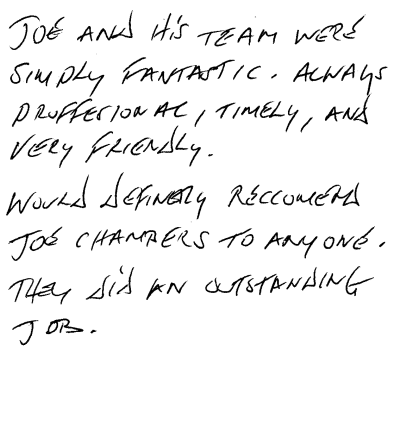 JOE AND HIS TEAM WERE
SIMPLY FANTASTIC. ALWAYS
PROFFESIONAL, TIMELY, AND
VERY FRIENDLY.
WOULD DEFINETLY RECCOMEND
JOE CHAMBERS TO ANYONE.
THEY DID AN OUTSTANDING
JOB.